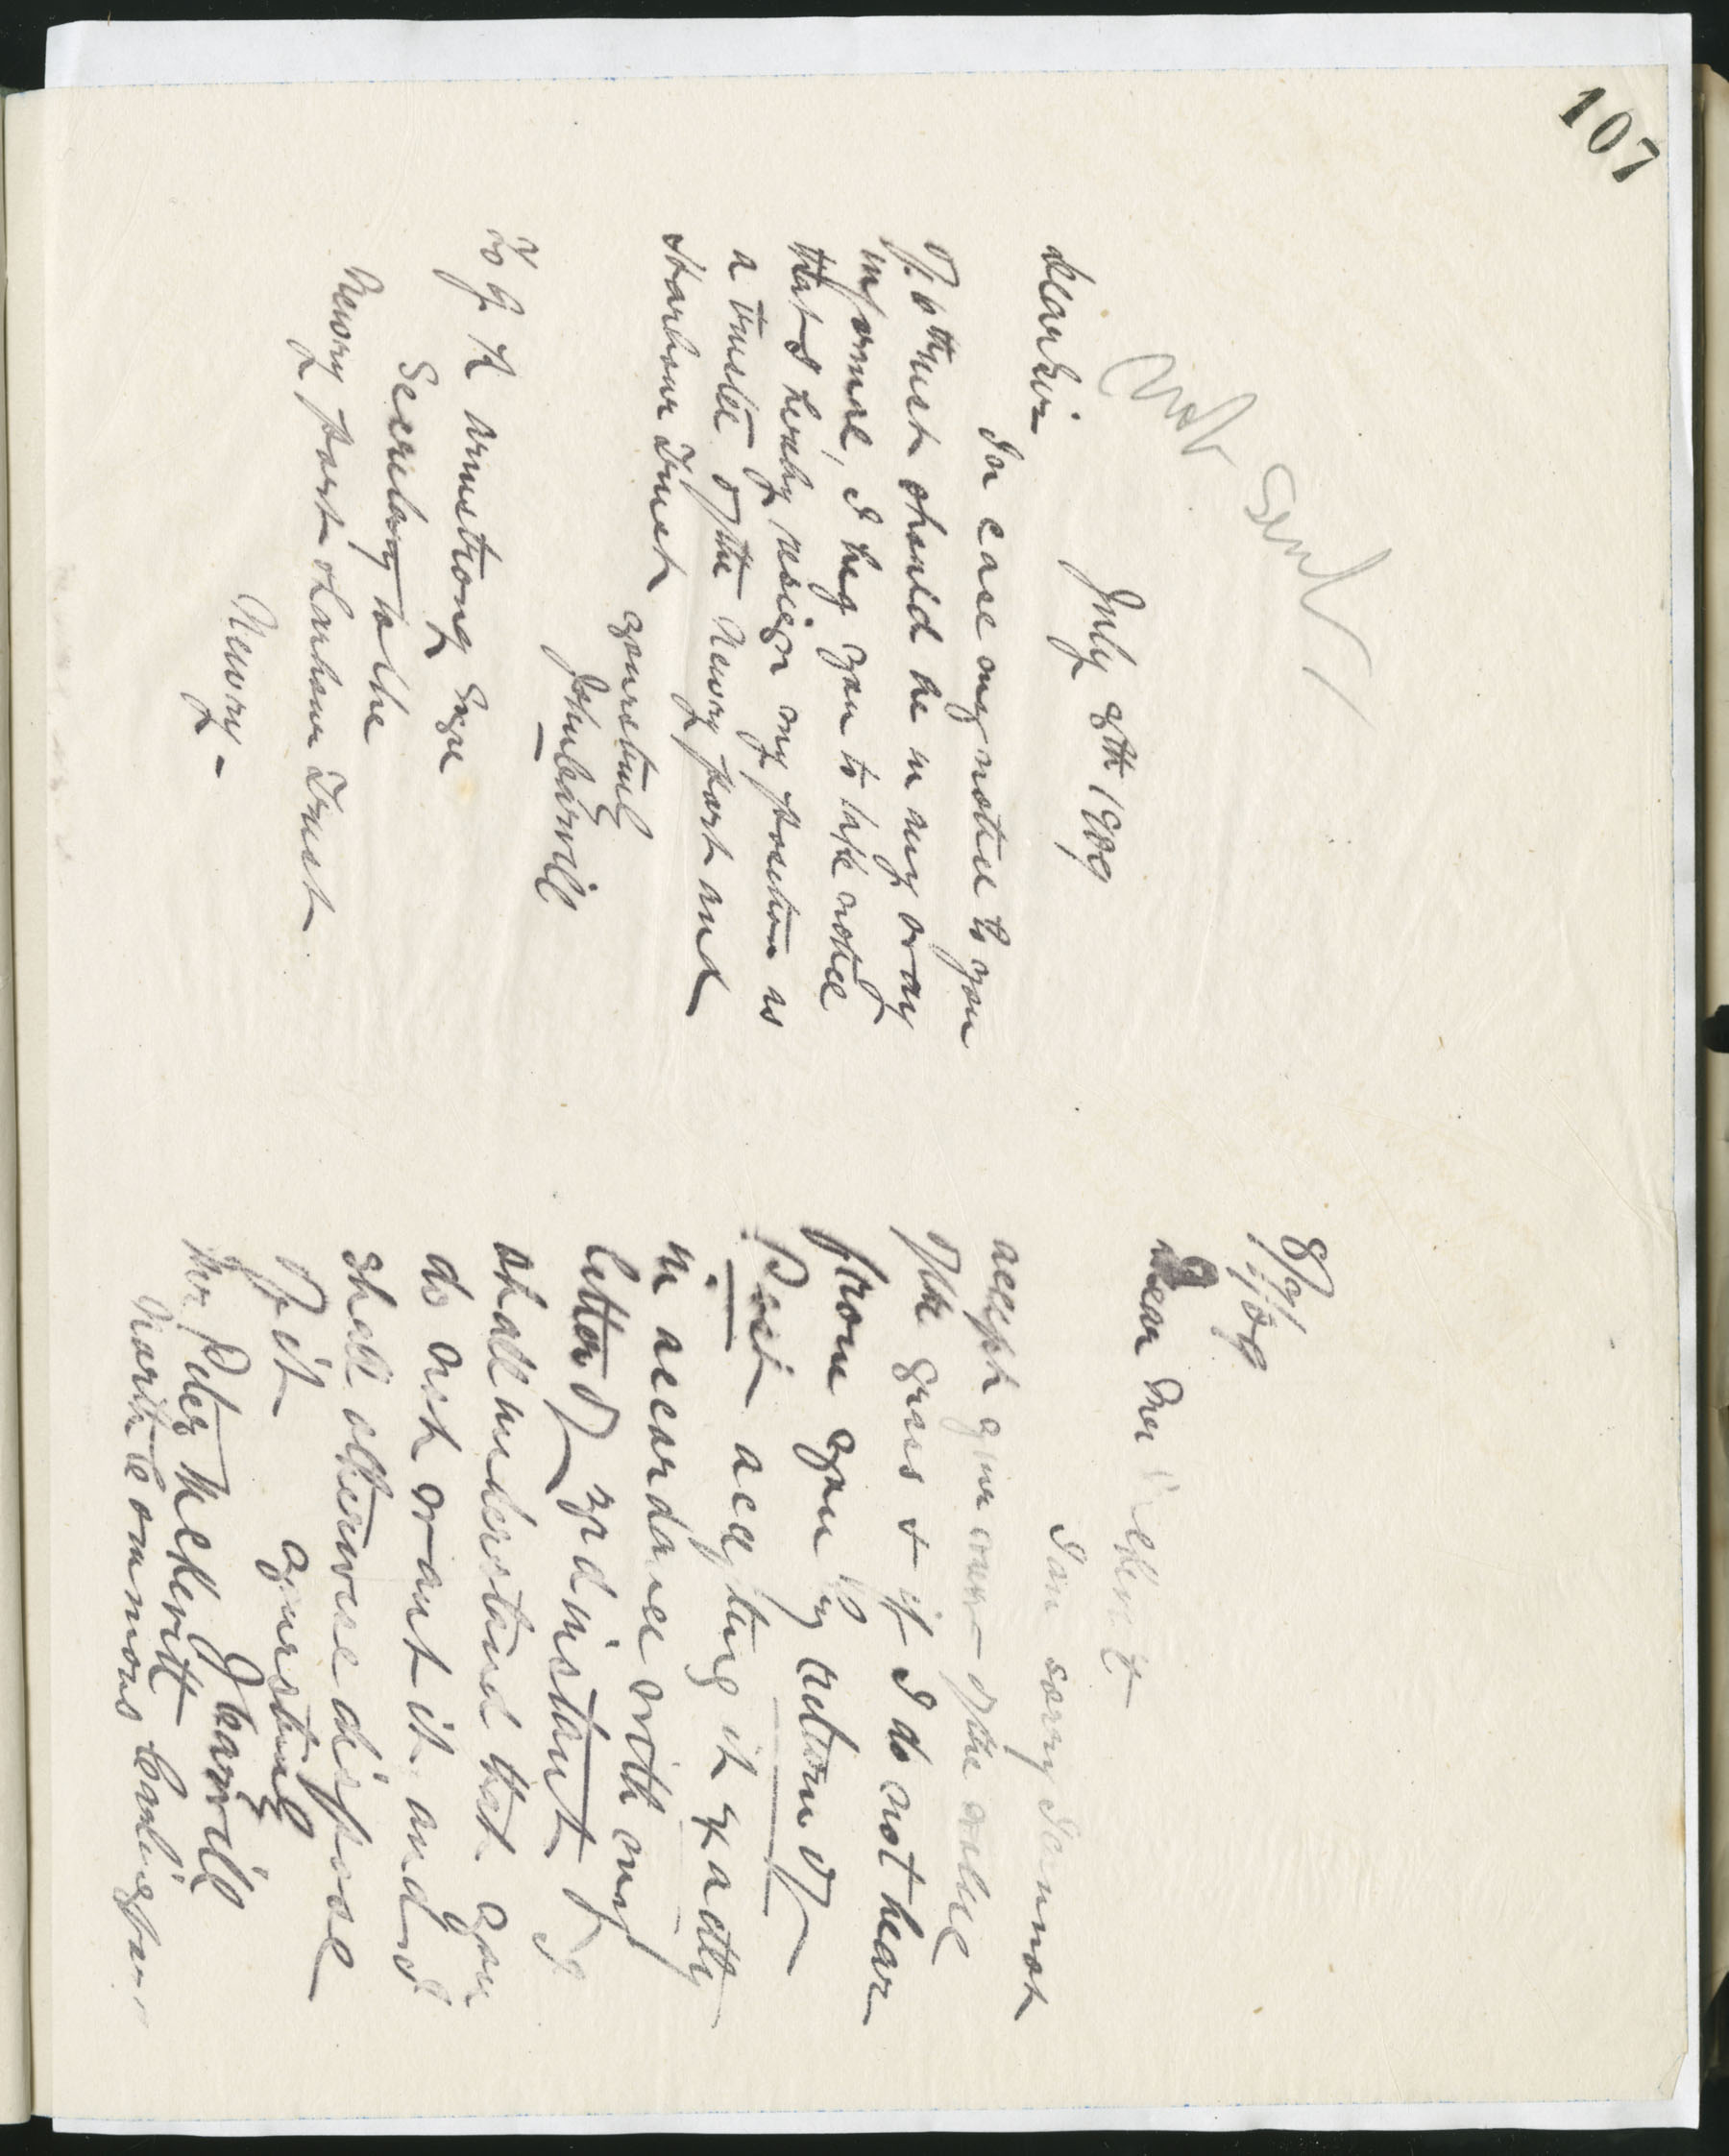 107
Not Sent
July 8th 1909
Dear Sir
In case my notice to you
of 6th inst should be in any way
informal, I beg you to take notice
that I hereby resign my position as
a Trustee of the Newry Port and
Harbour Trust
yours truly
John Carvill
To G. H Armstrong Esqre
Secretary to the
Newry Port & Harbour Trust
Newry -
8/7/09
Dear Mr McKevitt
I am sorry I cannot
accept your of the value
of the grass & if I do not hear
from you by return of
Post accepting it exactly
in accordance with my
letter of 3rd instant I
shall understand that you
do not want it and I
shall otherwise dispose
of it
yours truly
J Carvill
Mr Peter McKevitt
North Commons Carlingford